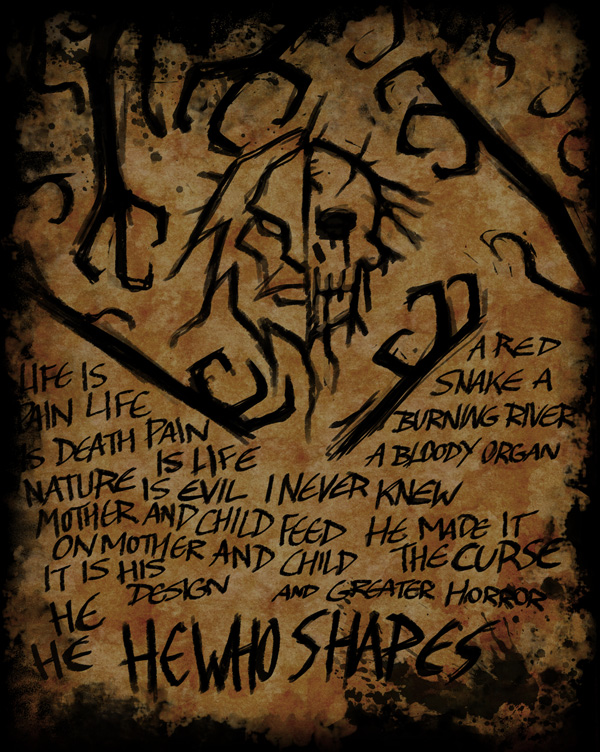 LIFE IS
PAIN LIFE
IS DEATH PAIN
IS LIFE
A RED
SNAKE A
BURNING RIVER
A BLOODY ORGAN
NATURE IS EVIL I NEVER KNEW
MOTHER AND CHILD FEED HE MADE IT
ON MOTHER AND CHILD THE CURSE
IT IS HIS
DESIGN AND GREATER HORROR
HE
HE HE WHO SHAPES